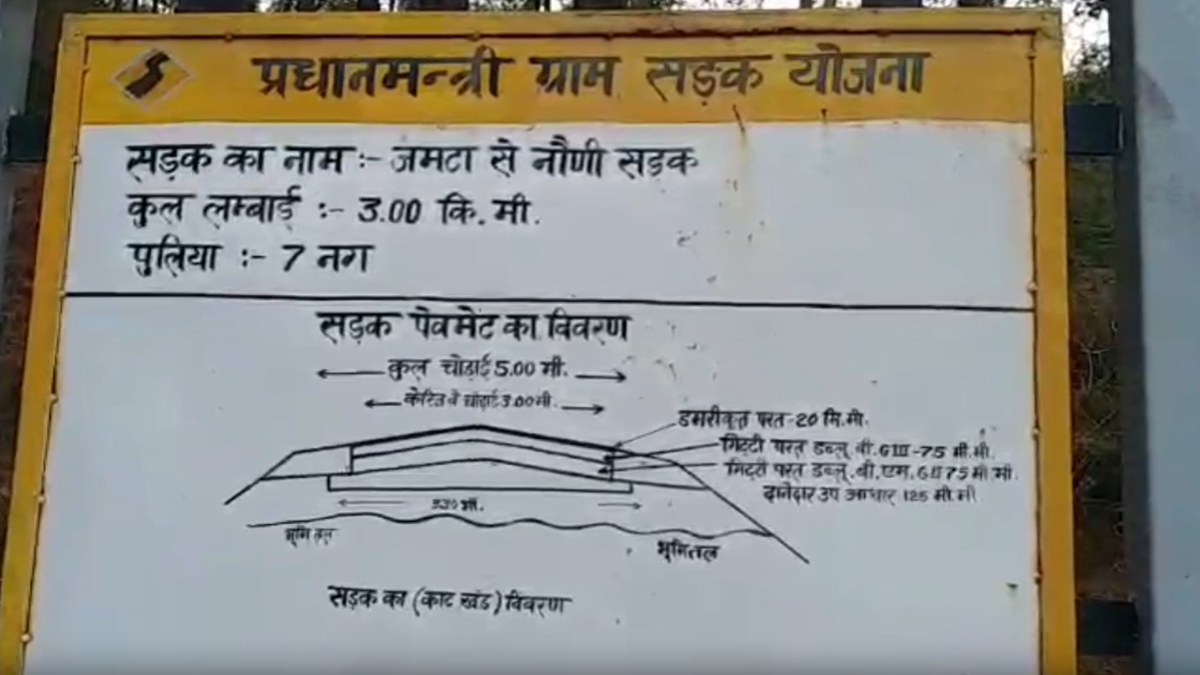 प्रधानमन्त्री ग्राम सड़क योजना
सड़क का नाम :- जमटा से नौणी सड़क
कुल लम्बाई :- 3.00 कि.मी.
पुलिया :- 7 नग
सड़क पेवमेंट का विवरण
कुल चोड़ाई 5.00 मी.
चोड़ाई 3.00 मी.
डमरीकृत परत-20 मि.मी.
मिट्टी परत डब्लू.बी. GIII-75 मी.मी.
मिट्टी परत डब्लू.बी.एम. GII 75 मी.मी.
दानेदार उप आधार 125 मी.मी.
भूमि तल
भूमितल
सड़क का (काट खंड) विवरण